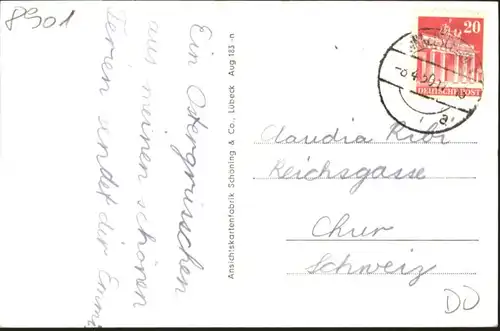 8901
Ein Ostergrüsschen
aus meinen schönen
Ferien sendet dir Emmi
Ansichtskartenfabrik Schöning & Co., Lübeck Aug 183 n
20
DEUTSCHE POST
-6.4.50
Claudia
Reichsgasse
Chur
Schweiz
DD